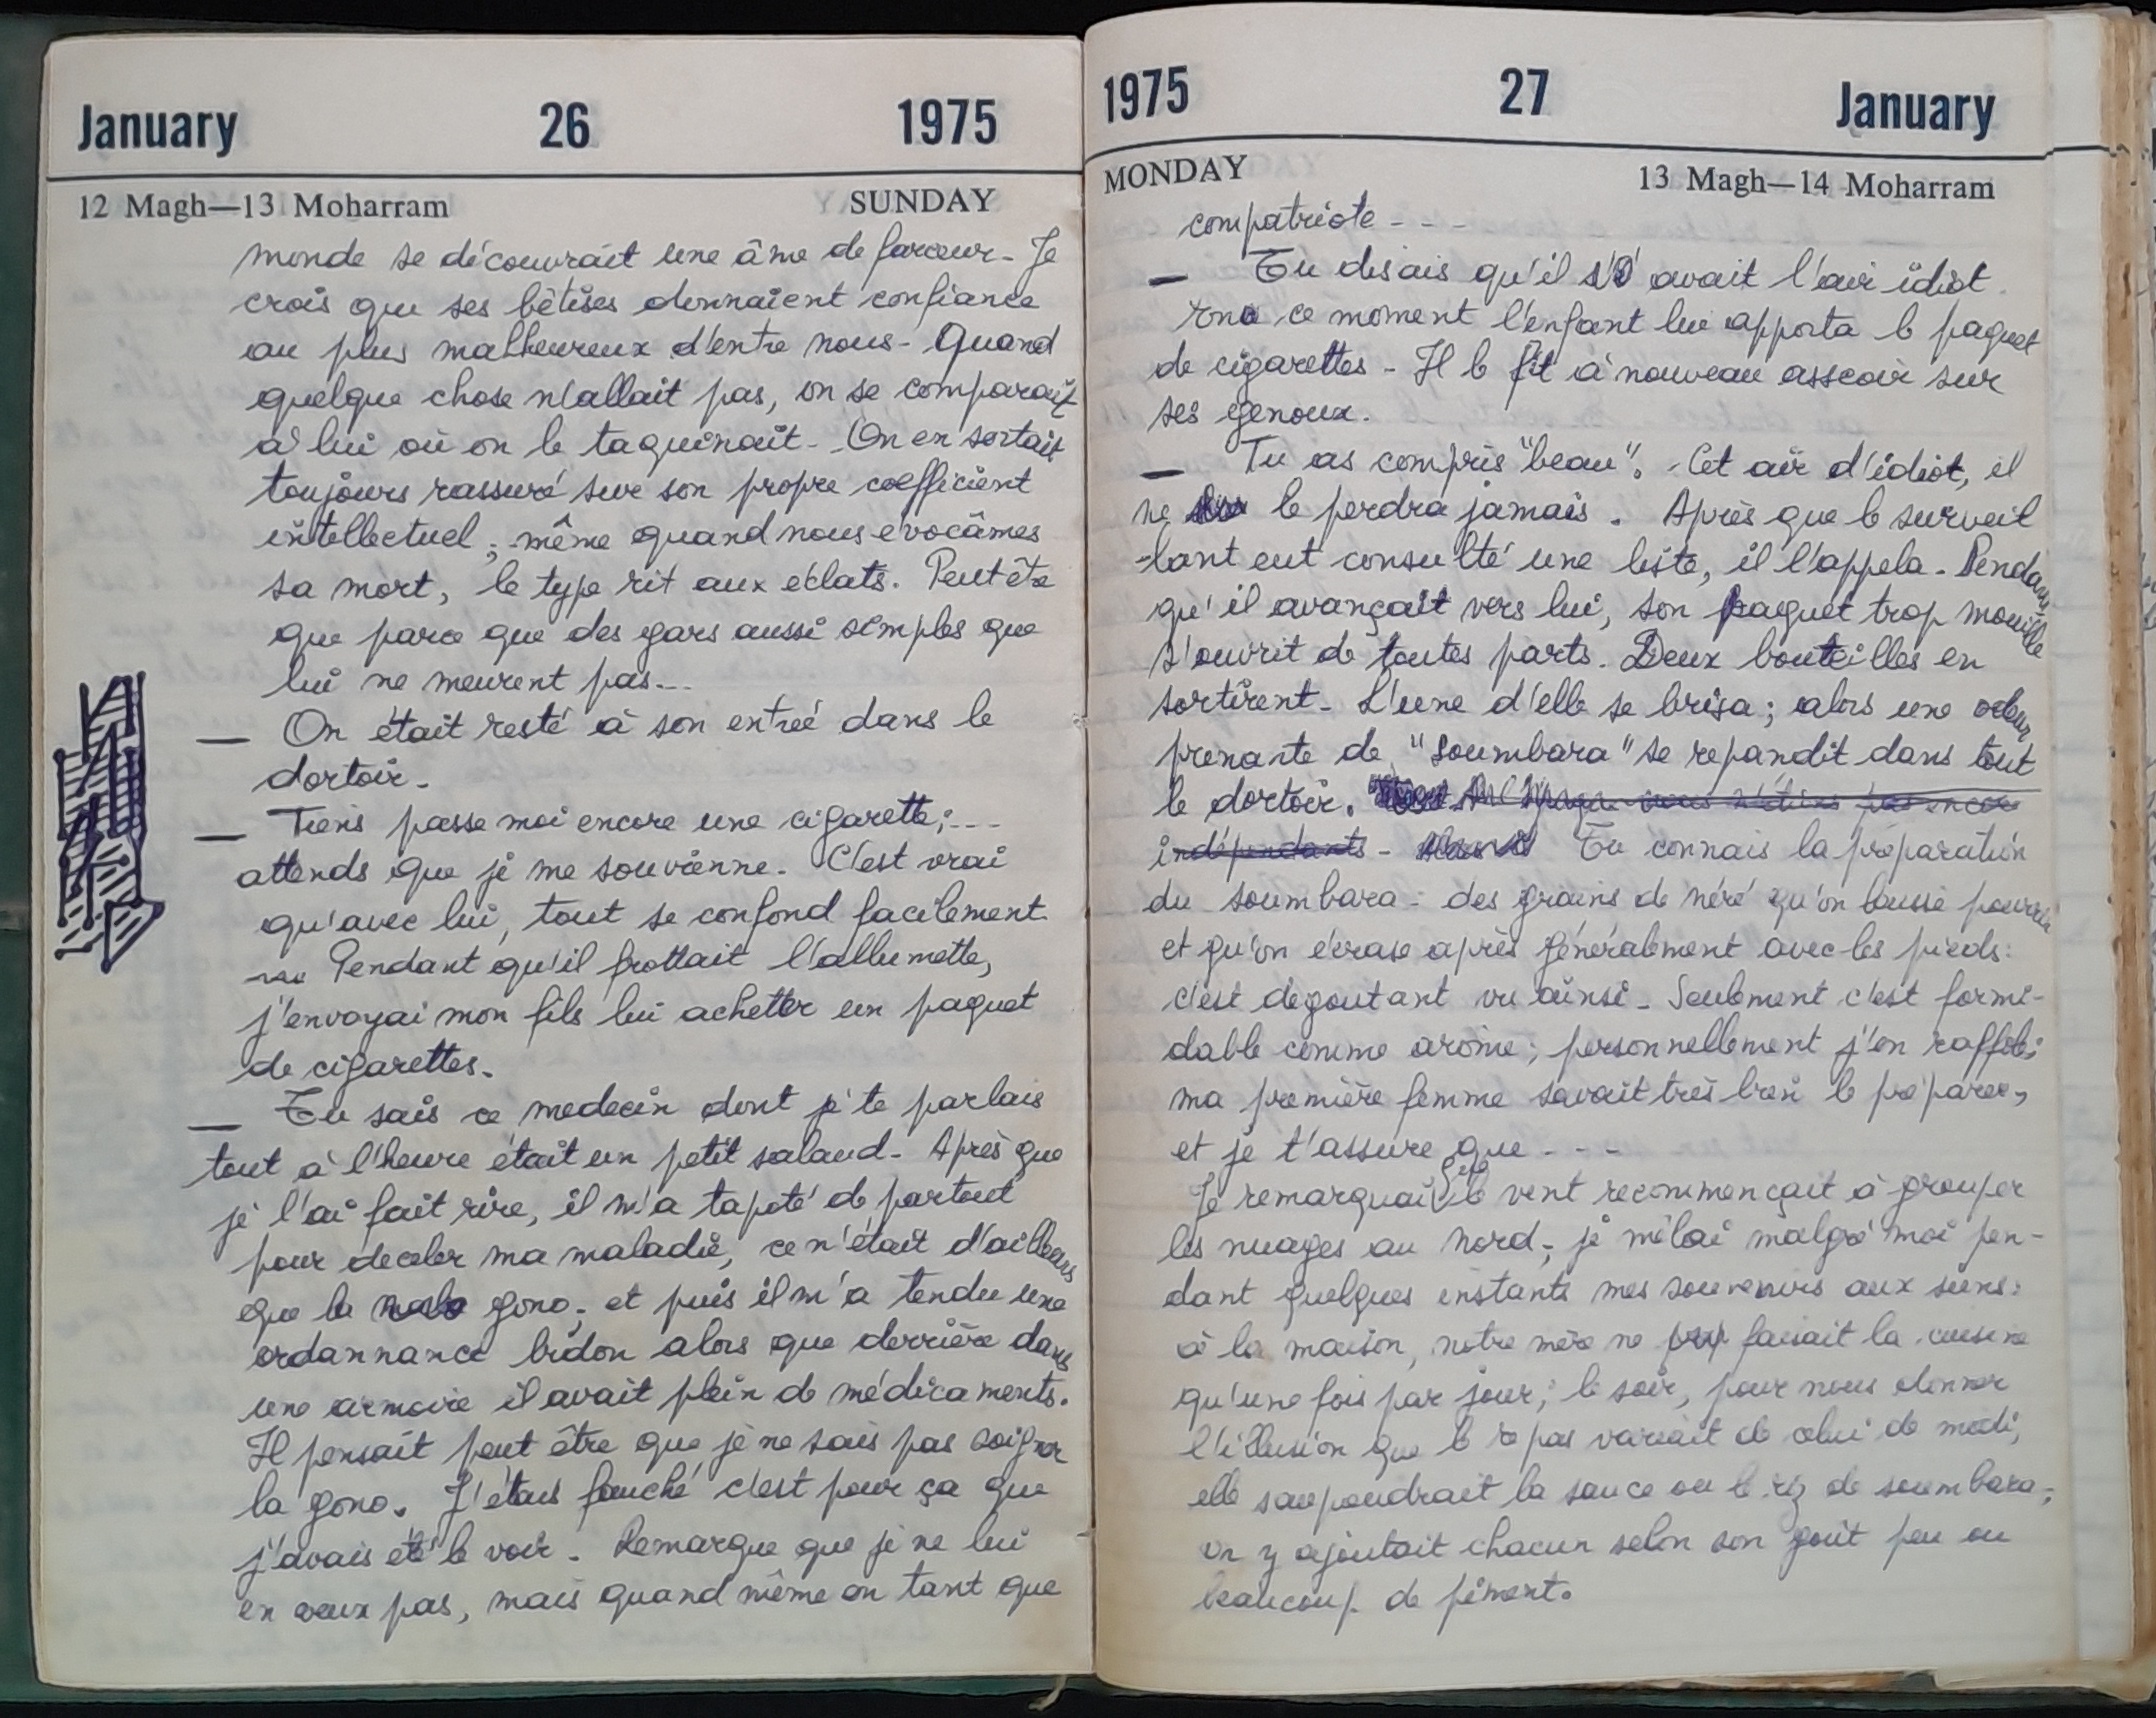 January 26 1975
12 Magh—13 Moharram SUNDAY
monde se découvrait une âme de farceur- Je
crois que ses bêtises donnaient confiance
au plus malheureux d'entre nous- Quand
quelque chose n'allait pas, on se comparait
à lui où on le taquinait- On en sortait
toujours rassuré sur son propre coefficient
intellectuel; même quand nous evocâmes
sa mort, le type rit aux eclats. Peut être
que parce que des gars aussi simples que
lui ne meurent pas...
— On était resté à son entrée dans le
dortoir-
— Tiens passe moi encore une cigarette;---
attends que je me souvienne- C'est vrai
qu'avec lui, tout se confond facilement
Pendant qu'il frottait l'allumette,
j'envoyai mon fils lui achetter un paquet
de cigarettes-
— Tu sais ce medecin dont je te parlais
tout à l'heure était un petit salaud- Après que
je l'ai fait rire, il m'a tapoté de partout
pour deceler ma maladie, ce n'était d'ailleurs
que la gono; et puis il m'a tendu une
ordannance bidon alors que derrière dans
une armoire il avait plein de médicaments.
Il pensait peut être que je ne sais pas soigner
la gono. J'étais fauché c'est pour ça que
j'avais été le voir- Remarque que je ne lui
en veux pas, mais quand même en tant que
1975 27 January
MONDAY 13 Magh—14 Moharram
compatriote---
— Tu disais qu'il avait l'air idiot.
ce moment l'enfant lui apporta le paquet
de cigarettes- Il le fit à nouveau asseoir sur
ses genoux.
— Tu as compris "beau". Cet air d'idiot, il
ne le perdra jamais. Après que le surveil
-lant eut consulté une liste, il l'appela- Pendant
qu'il avançait vers lui, son paquet trop mouillé
s'ouvrit de toutes parts. Deux bouteilles en
sortirent- L'une d'elle se brisa; alors une odeur
prenante de "soumbara" se repandit dans tout
le dortoir. nous n'étions pas encore
indépendants- Tu connais la préparation
du soumbara: des grains de néré qu'on laisse pourrir
et qu'on écrase après généralement avec les pieds:
c'est degoutant vu ainsi- Seulement c'est formi-
dable comme arôme; personnellement j'en raffole;
ma première femme savait très bien le préparer,
et je t'assure que---
Je remarquai que le vent recommençait à grouper
les nuages au nord; je mêlai malgré moi pen-
dant quelques instants mes souvenirs aux siens:
à la maison, notre mère ne faisait la cuisine
qu'une fois par jour; le soir, pour nous donner
l'illusion que le repas variait de celui de midi,
elle saupoudrait la sauce ou le riz de soumbara;
on y ajoutait chacun selon son goût peu ou
beaucoup de piment.